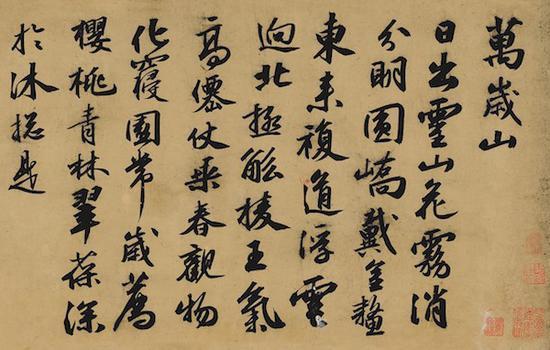 萬歲山
日出靈山花霧消
分明圓嶠戴金鼇
東来複道浮雲
迥北極觚棱王氣
高僊仗乘春觀物
化寢園常歲薦
櫻桃青林翠葆深
於沐揔是